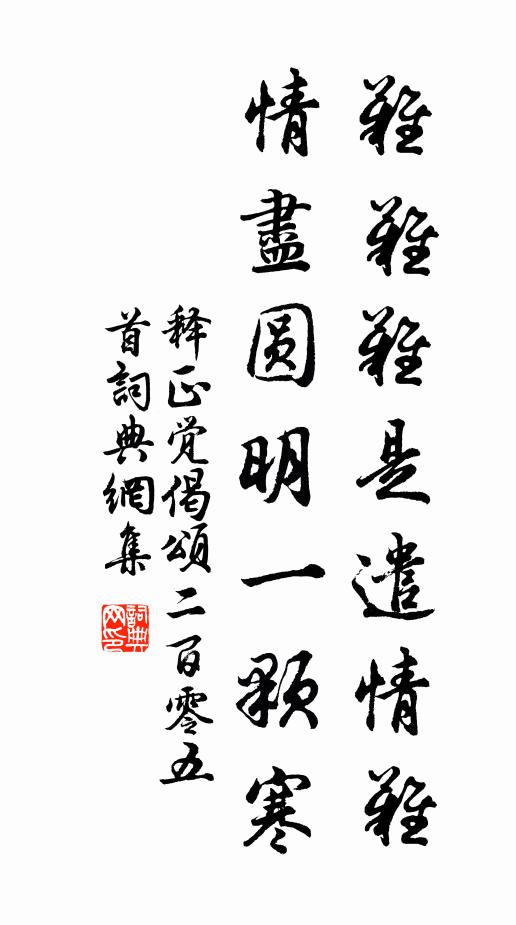 難難難是遣情難
情盡圆明一顆寒
释正觉偈頌二百零五
首詞典網集
詞典网印